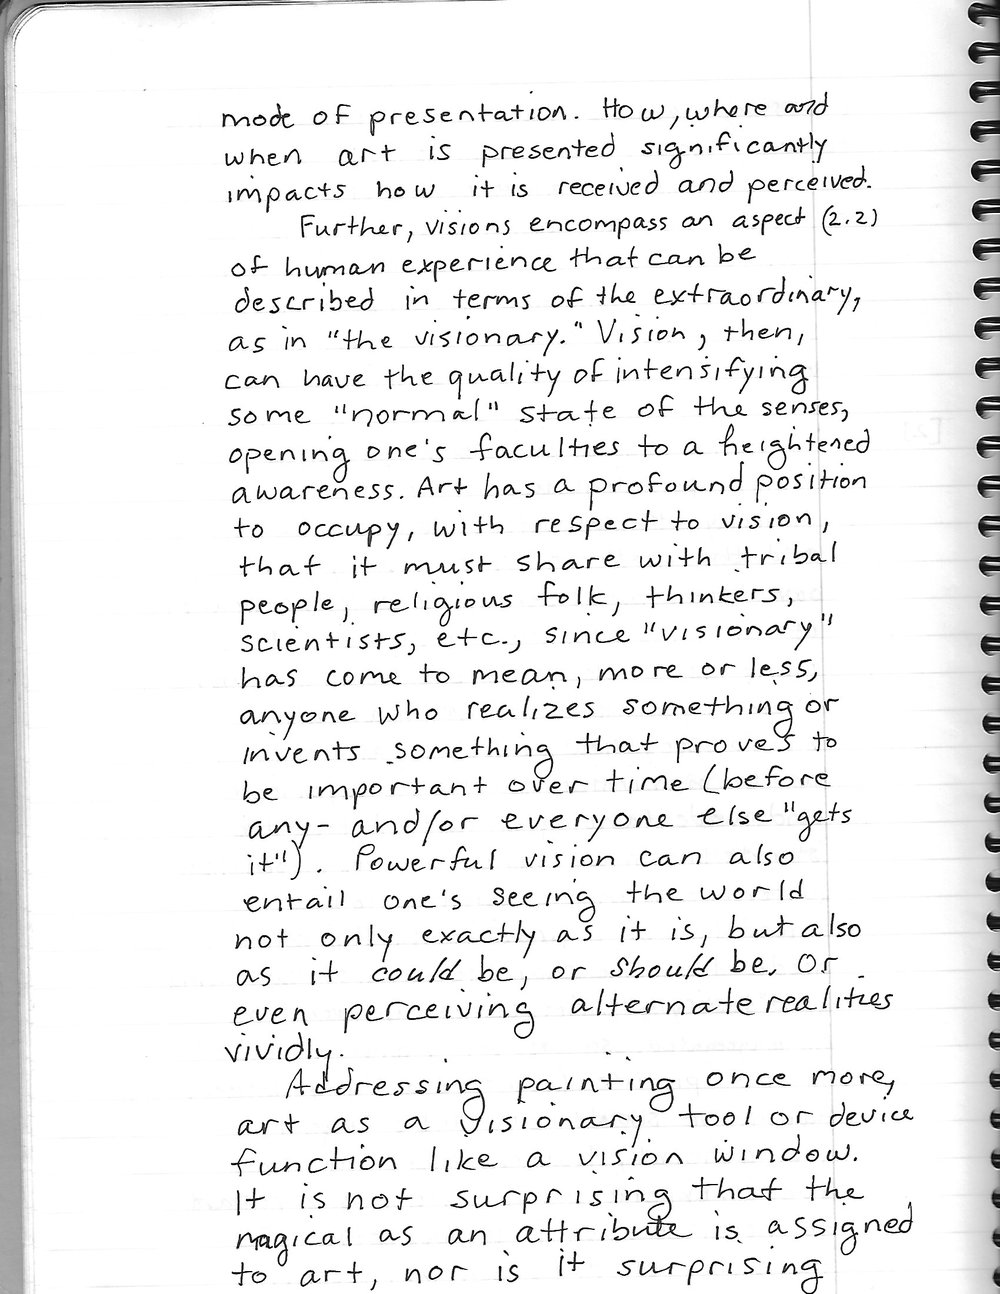 mode of presentation. How, where and
when art is presented significantly
impacts how it is received and perceived.
Further, visions encompass an aspect (2.2)
of human experience that can be
described in terms of the extraordinary,
as in "the visionary." Vision, then,
can have the quality of intensifying
some "normal" state of the senses,
opening one's faculties to a heightened
awareness. Art has a profound position
to occupy, with respect to vision,
that it must share with tribal
people, religious folk, thinkers,
scientists, etc., since "visionary"
has come to mean, more or less,
anyone who realizes something or
invents something that proves to
be important over time (before
any- and/or everyone else "gets
it"). Powerful vision can also
entail one's seeing the world
not only exactly as it is, but also
as it could be, or should be. Or
even perceiving alternate realities
vividly.
Addressing painting once more,
art as a visionary tool or device
function like a vision window.
It is not surprising that the
magical as an attribute is assigned
to art, nor is it surprising